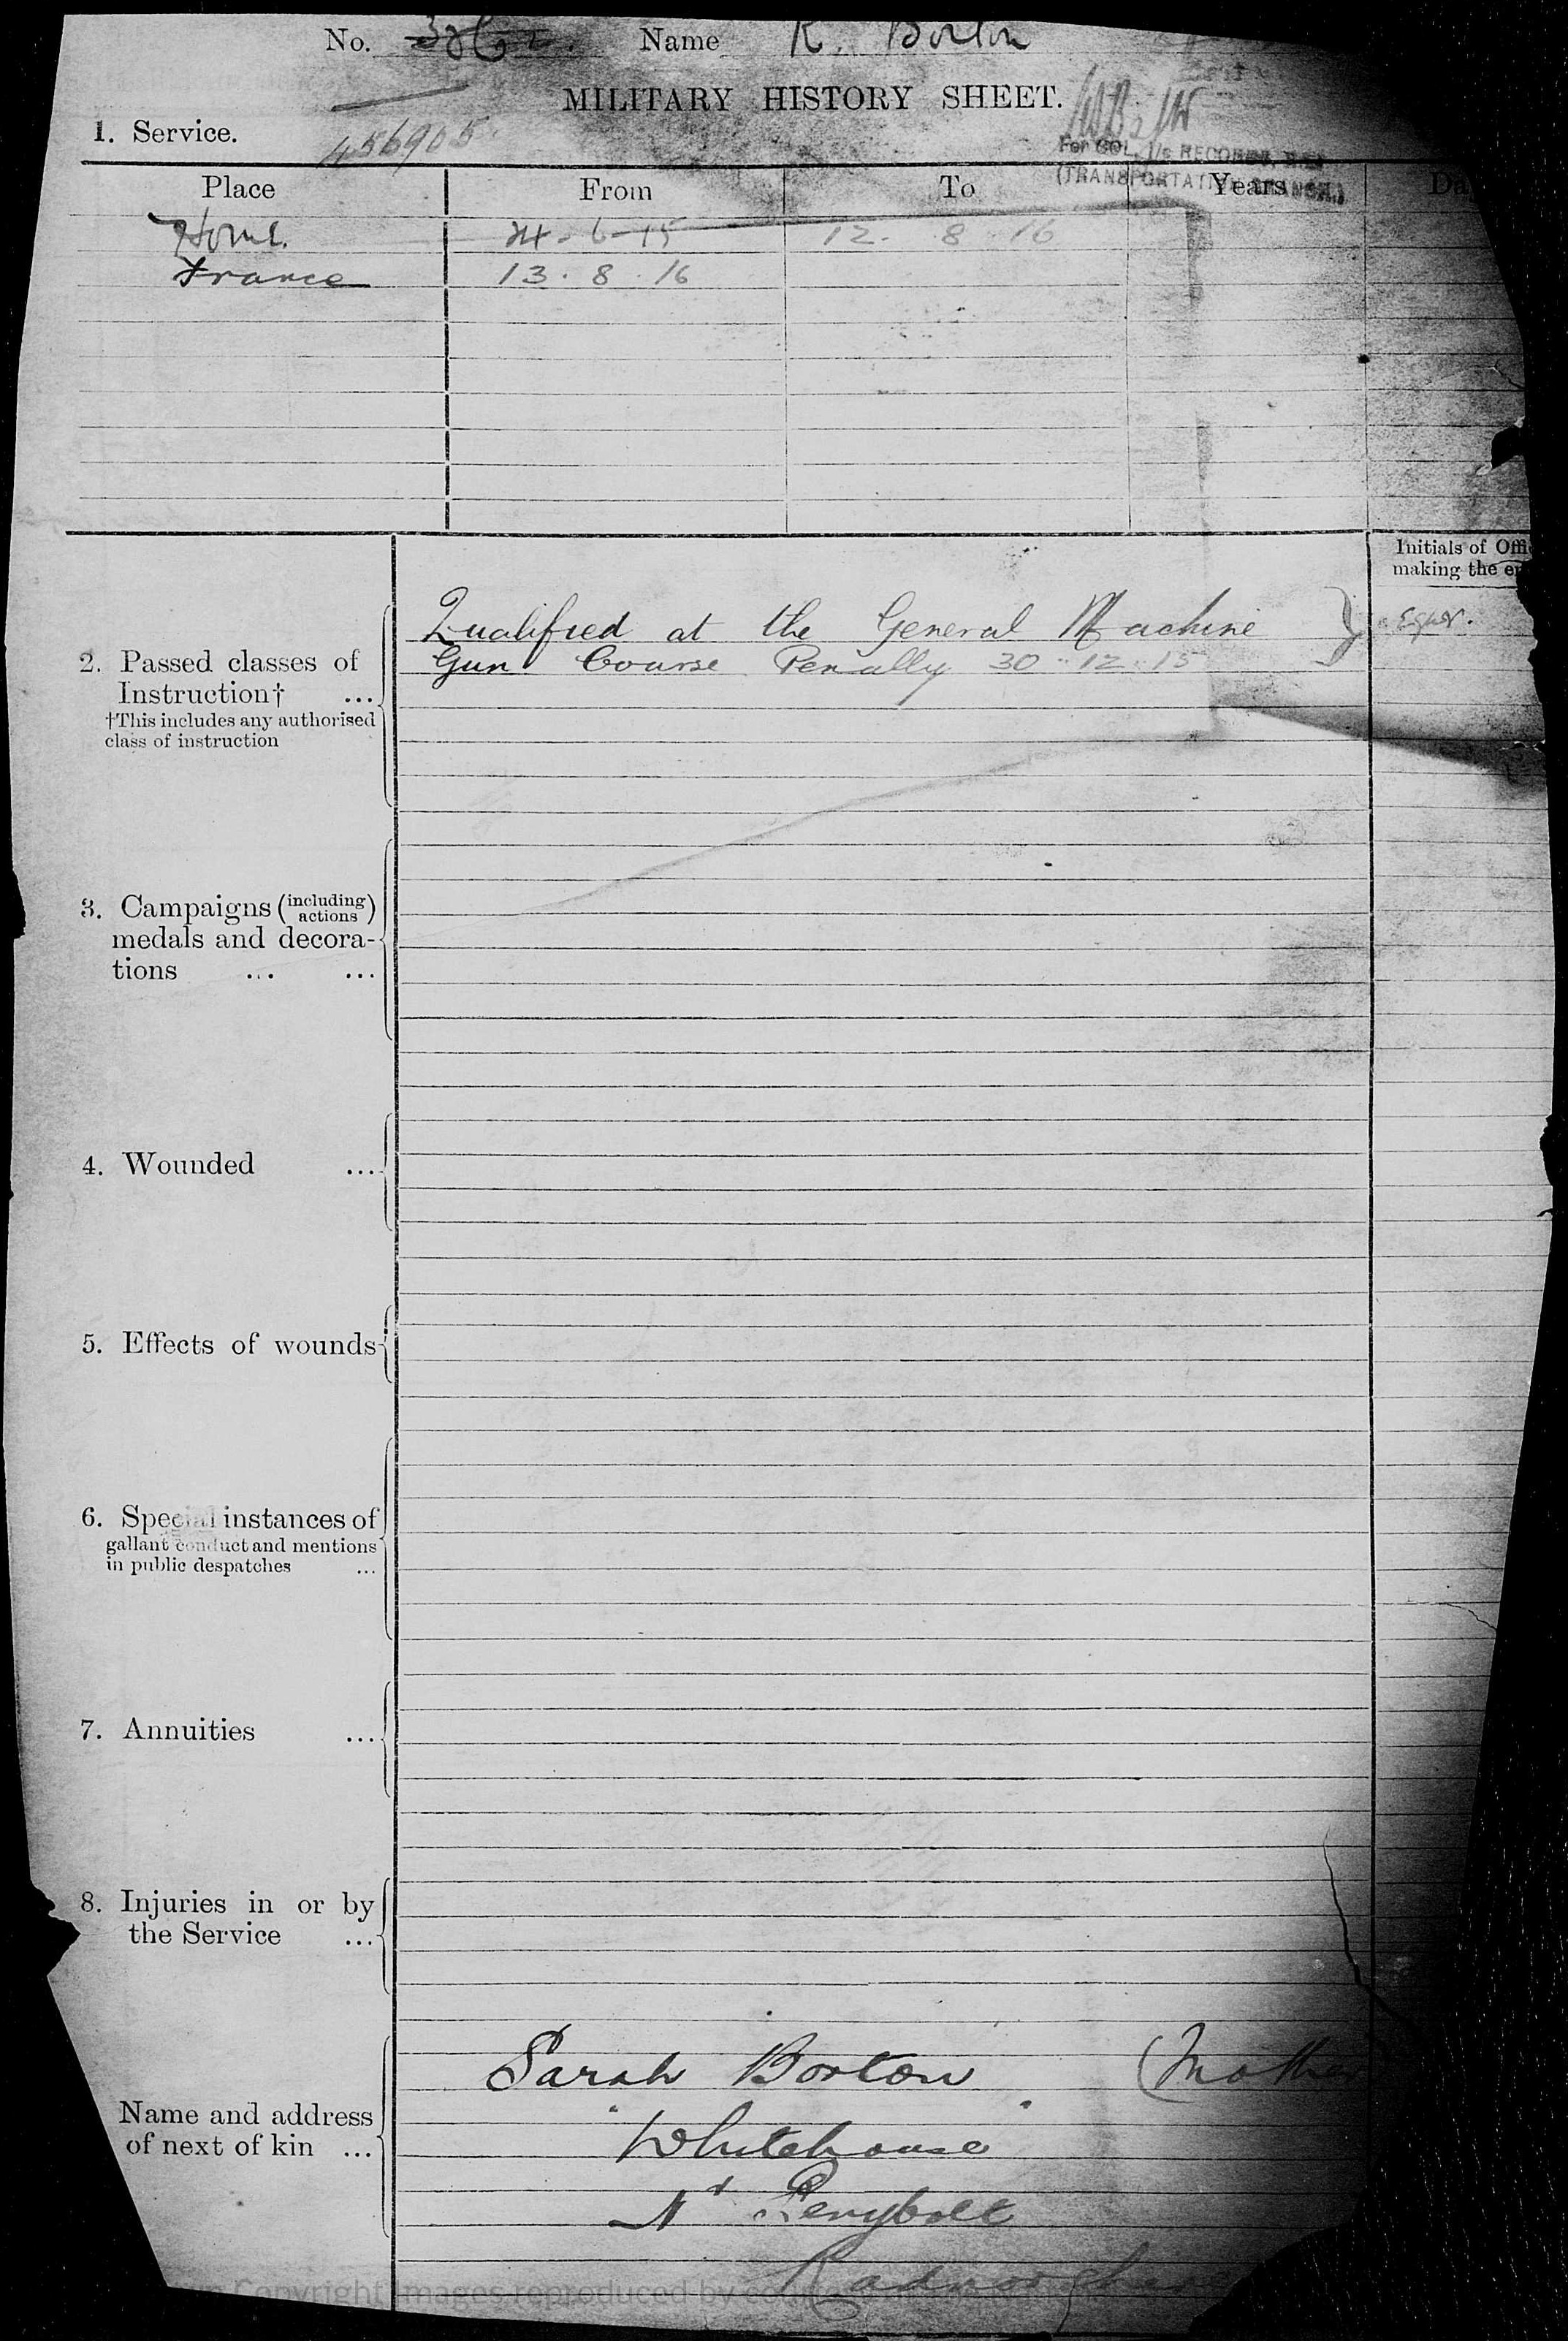 No. Name R. Borton
MILITARY HISTORY SHEET.
1. Service.
456905
For COL. I/c RECORDS, R.E.
(TRANSPORTATION BRANCH.)
Place From To Years Da
Home. 24-6-15 12. 8 16
France 13. 8. 16
Initials of Offi
making the e
2. Passed classes of
Instruction† ...
†This includes any authorised
class of instruction
Qualified at the General Machine
Gun Course Penally 30-12-15
3. Campaigns (including actions)
medals and decora-
tions ... ...
4. Wounded ...
5. Effects of wounds
6. Special instances of
gallant conduct and mentions
in public despatches ...
7. Annuities ...
8. Injuries in or by
the Service ...
Name and address
of next of kin ...
Sarah Borton (Mother
"Whitehouse"
Nr Penybont
Radnorshire
Copyright Images reproduced by